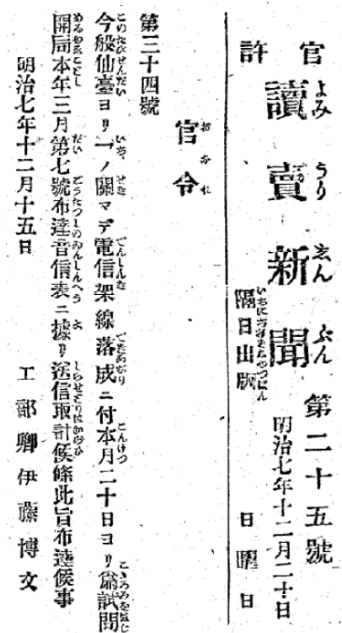 官許
讀賣新聞
よみうりゑんぶん
第二十五號
明治七年十二月二十日
日曜日
隔日出版
官令
第三十四號
今般仙臺ヨリ一ノ關マデ電信架線落成ニ付本月二十日ヨリ爲試問
開局本年三月第七號布達音信表ニ據リ送信取計候條此旨布達候事
明治七年十二月十五日
工部卿伊藤博文